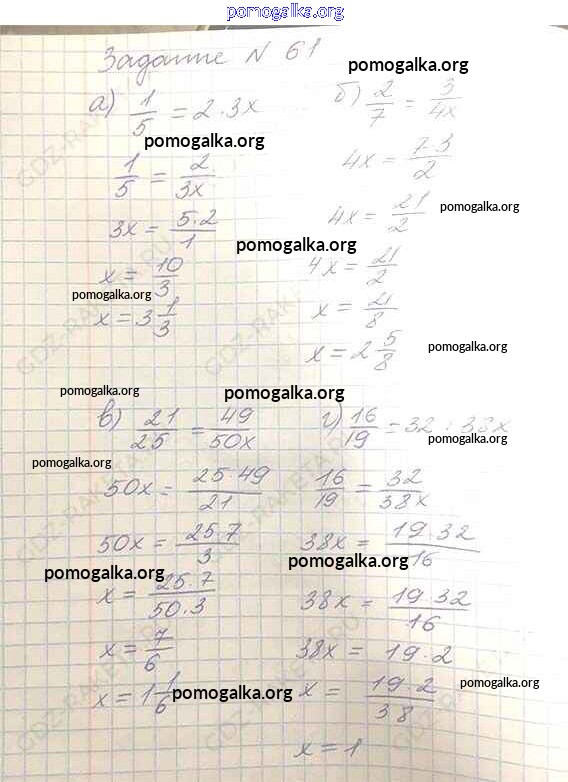 pomogalka.org
Задание N 61
pomogalka.org
а) 1/5 = 2 · 3x
pomogalka.org
1/5 = 2/3x
3x = 5·2/1
x = 10/3
pomogalka.org
x = 3 1/3
б) 2/7 = 3/4x
4x = 7·3/2
4x = 21/2
pomogalka.org
pomogalka.org
4x = 21/2
x = 21/8
x = 2 5/8
pomogalka.org
pomogalka.org
pomogalka.org
в) 21/25 = 49/50x
pomogalka.org
50x = 25·49/21
50x = 25·7/3
pomogalka.org
x = 25·7/50·3
x = 7/6
x = 1 1/6
pomogalka.org
г) 16/19 = 32 : 38x
pomogalka.org
16/19 = 32/38x
38x = 19·32/16
pomogalka.org
38x = 19·32/16
38x = 19·2
x = 19·2/38
pomogalka.org
x = 1
GDZ-RAKETA.RU